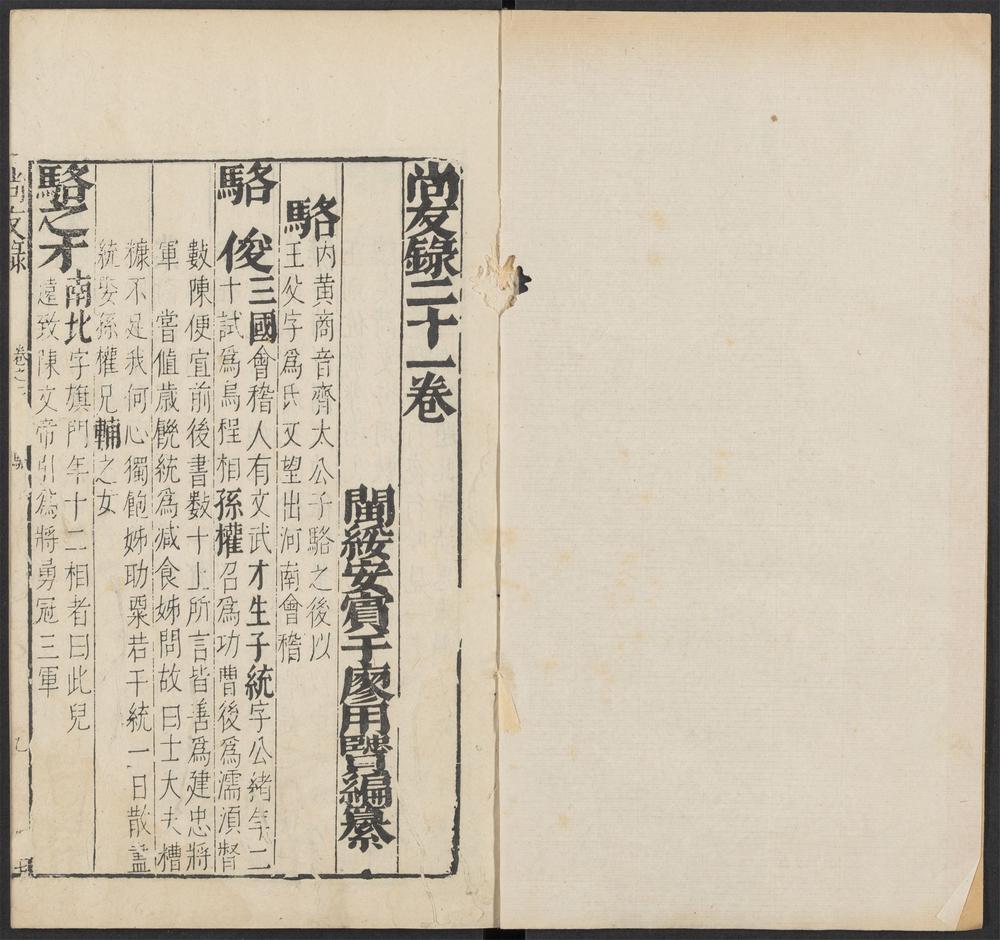 尚友錄二十一卷
閩綏安賓于廖用賢編纂
駱
內黃商音齊太公子駱之後以
王父字爲氏又望出河南會稽
駱俊三國會稽人有文武才生子統字公緒年二
十試爲烏程相孫權召爲功曹後爲濡湏督
數陳便宜前後書數十上所言皆善爲建忠將
軍嘗值歲饑統爲减食姊問故曰士大夫糟
糠不足我何心獨飽姊助粟若干統一日散盡
統娶孫權兄輔之女
駱之才南北字旗門年十二相者曰此兒
遠致陳文帝引爲將勇冠三軍
尚友錄 卷之